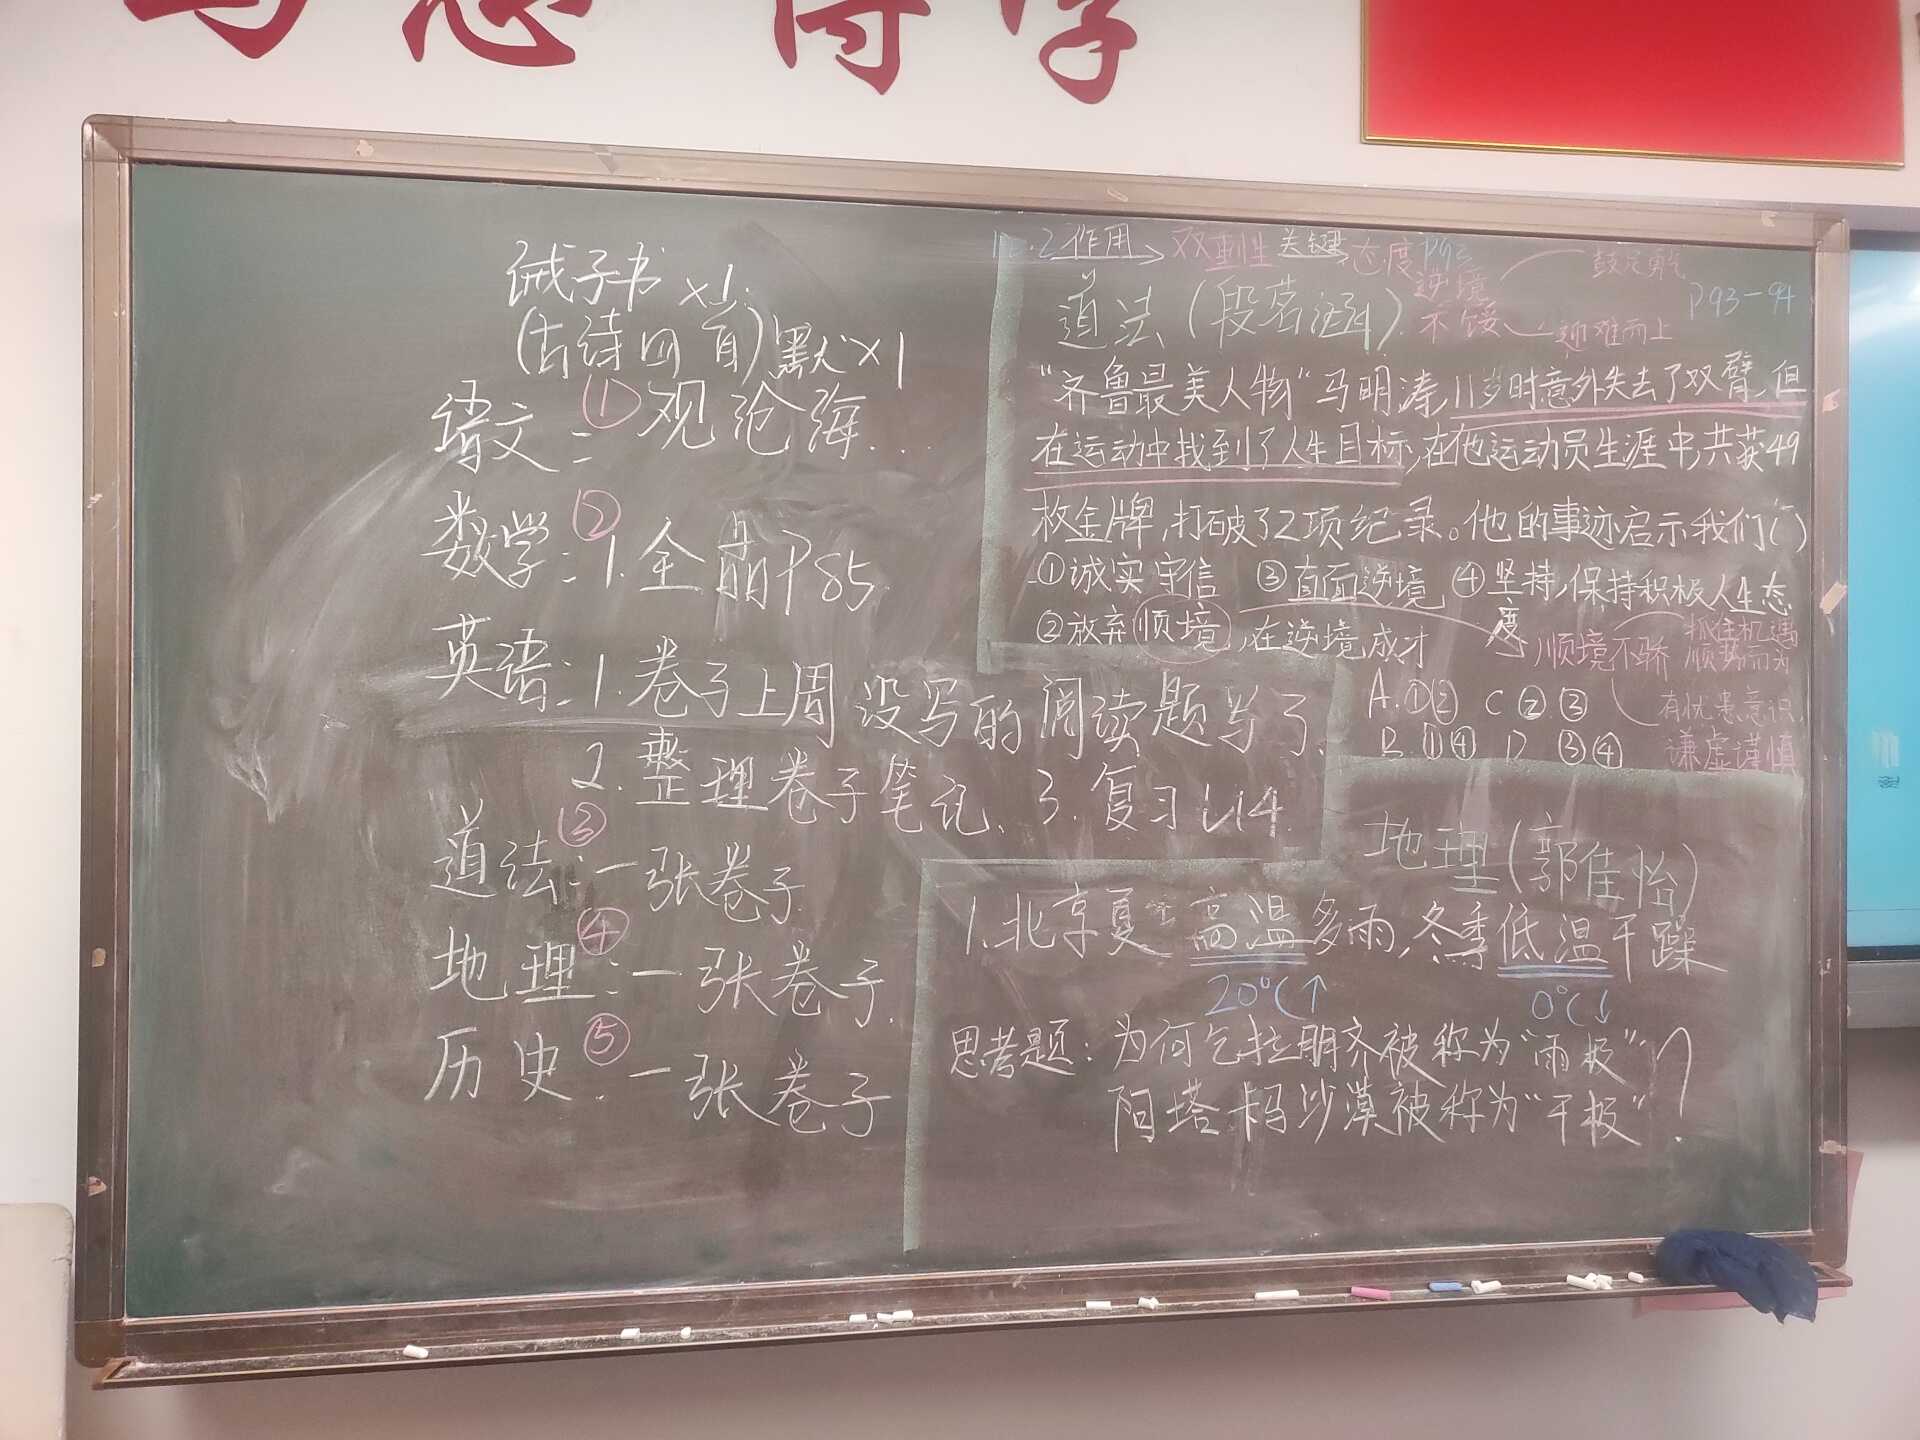 诫子书 ×1.
(古诗四首)默×1
语文: ①观沧海...
数学: ②1.全品P85
英语: 1.卷子上周没写的阅读题写了.
2.整理卷子笔记. 3.复习U4.
道法: ③一张卷子
地理: ④一张卷子.
历史: ⑤一张卷子
2作用→双重性 关键→态度 P92
逆境不馁
鼓足勇气
迎难而上
P93-94
道法(段茗涵).
“齐鲁最美人物”马明涛,11岁时意外失去了双臂,但
在运动中找到了人生目标,在他运动员生涯中,共获49
枚金牌,打破了2项纪录。他的事迹启示我们( )
①诚实守信 ③直面逆境 ④坚持,保持积极人生态度
②放弃顺境,在逆境成才
顺境不骄
抓住机遇
顺势而为
有忧患意识,
谦虚谨慎
A.①② C ②③
B.①④ D ③④
地理(郭佳怡)
1.北京夏季高温多雨,冬季低温干燥
20℃↑ 0℃↓
思考题: 为何乞拉朋齐被称为“雨极”
阿塔卡玛沙漠被称为“干极”?